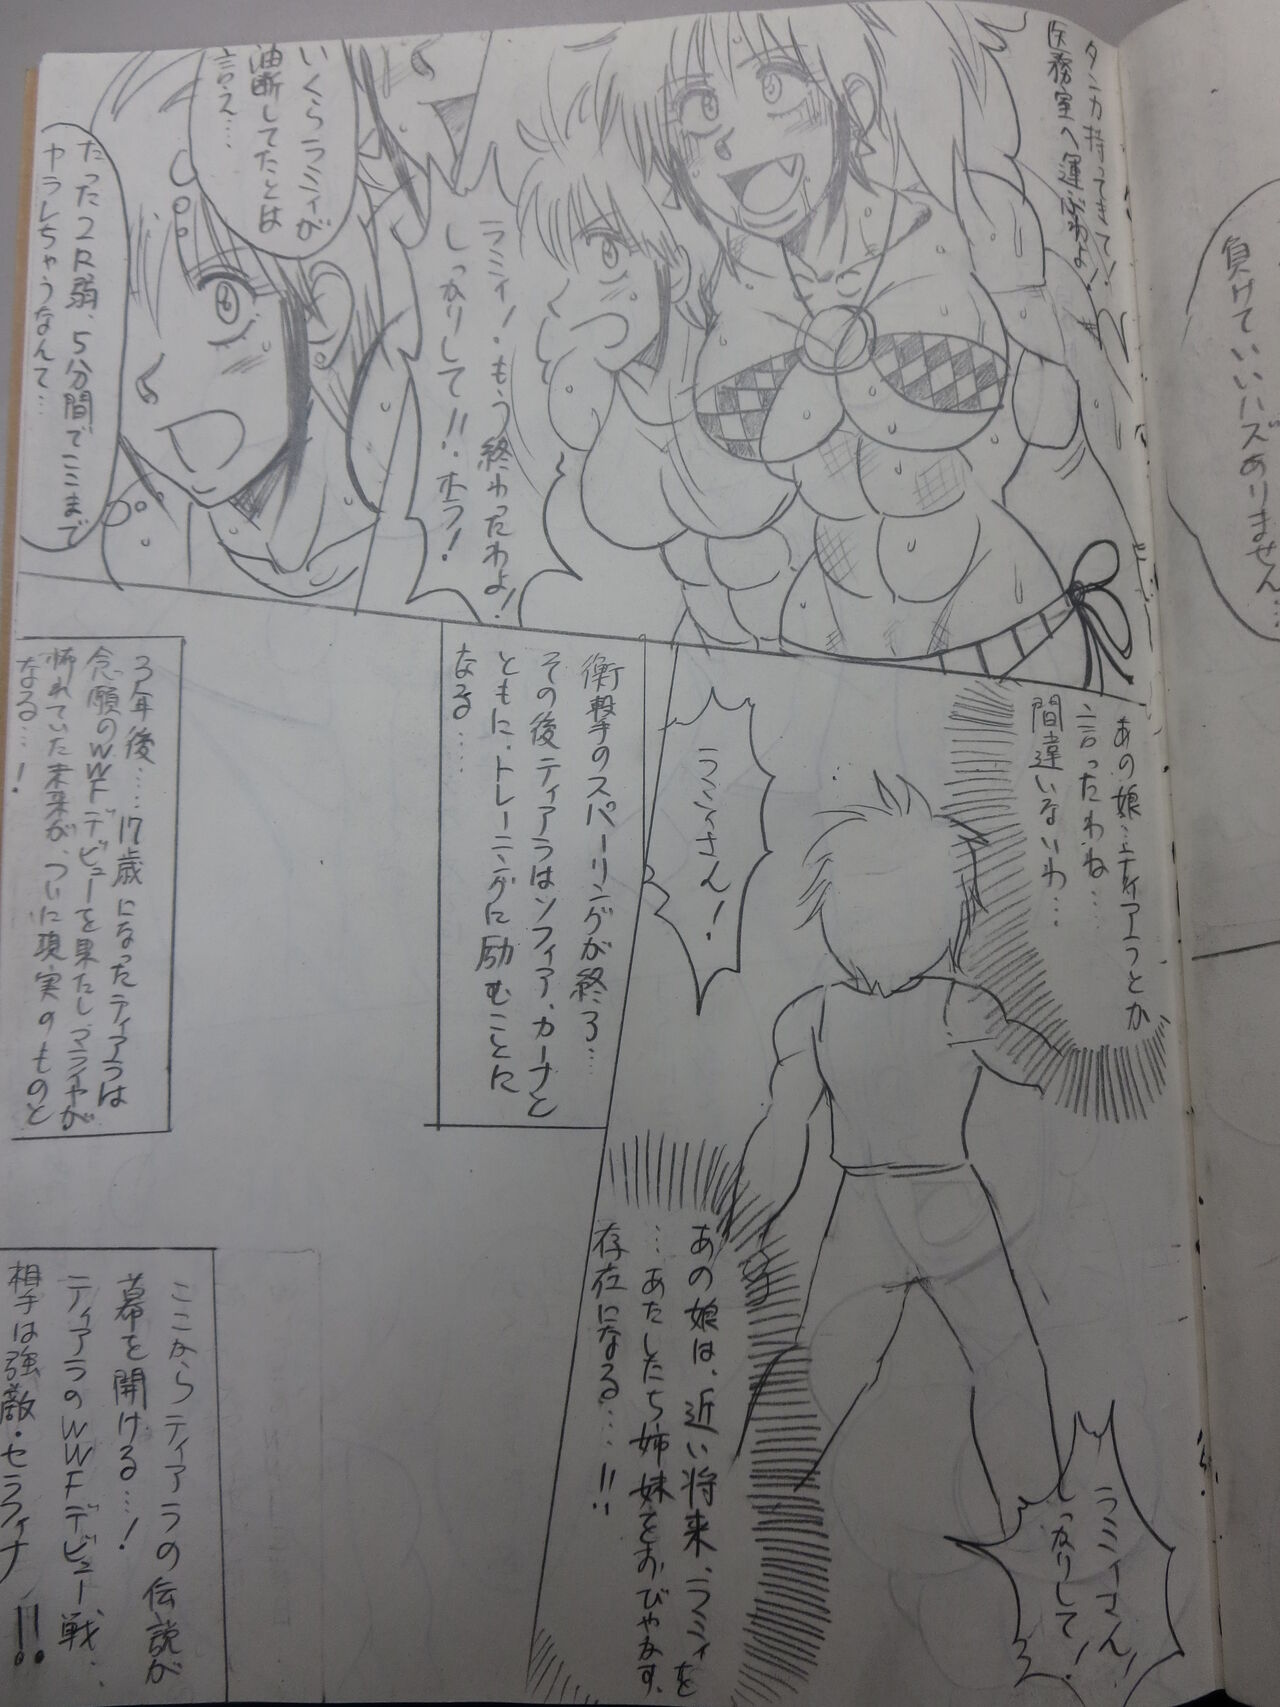 負けていいハズありません…
タンカ持ってきて!
医務室へ運ぶわよ!
ラミィ!もう終わったわよ!
しっかりして!!ホラ!
いくらラミィが
油断してたとは
言え…
たった2R弱、5分間でここまで
ヤラレちゃうなんて…
あの娘…ティアラとか
言ったわね…
間違いないわ…
ラミィさん!
あの娘は、近い将来、ラミィを
…あたしたち姉妹をおびやかす、
存在になる…!!
ラミィさん!
しっかりして!
衝撃のスパーリングが終了…
その後ティアラはソフィア、カーナと
ともに、トレーニングに励むことに
なる…
3年後…17歳になったティアラは
念願のWWFデビューを果たし、マライヤが
怖れていた未来が、ついに現実のものと
なる…!
ここからティアラの伝説が
幕を開ける…!
ティアラのWWFデビュー戦、
相手は強敵・セラフィナ!!